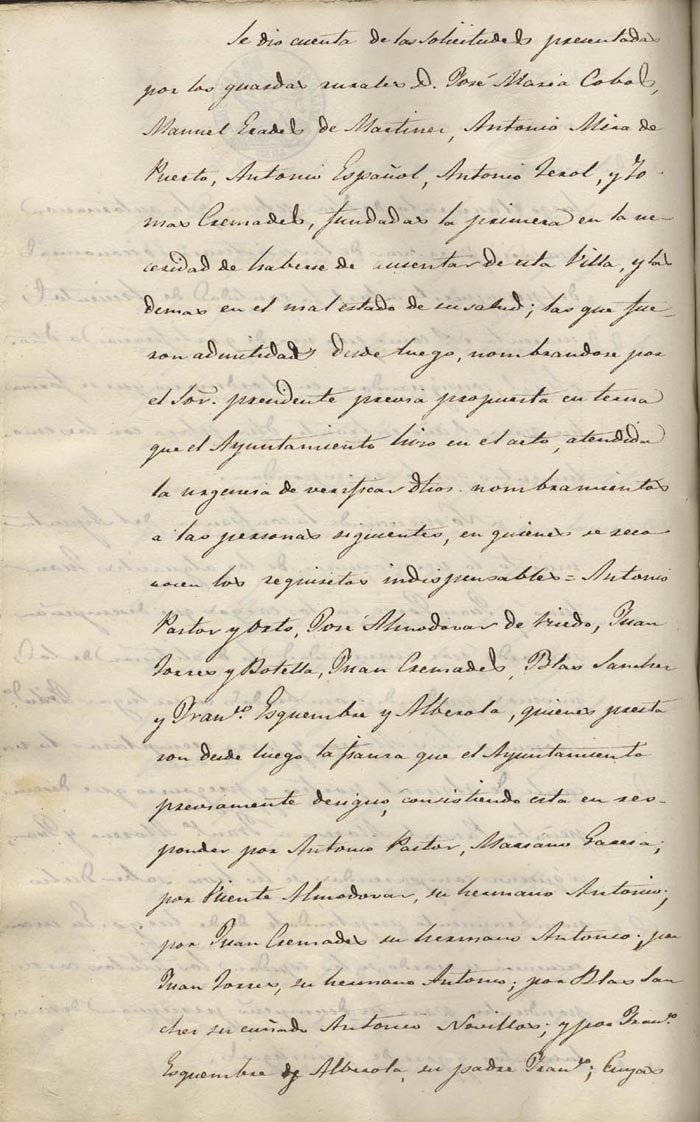 Se dio cuenta de las solicitudes presentadas
por los guardas rurales D. José Maria Cobos,
Manuel Gradel de Martinez, Antonio Mira de
Puerto, Antonio Español, Antonio Terol, y To-
mas Cremades, fundadas la primera en la ne-
cesidad de haberse de ausentar de esta Villa, y las
demas en el mal estado de su salud; las que fue-
ron admitidas desde luego, nombrandose por
el Sor. presidente previa propuesta en terna
que el Ayuntamiento hizo en el acto, atendida
la urgencia de verificar dhos. nombramientos
a las personas siguientes, en quienes se reco
nocen los requisitos indispensables = Antonio
Pastor y Orts, José Almodovar de Juan
Torres y Botella, Juan Cremades, Blas Sanchez
y Franco. Esquembre y Alberola, quienes presta
ron desde luego la fianza que el Ayuntamiento
previamente designo, consistiendo esta en res-
ponder por Antonio Pastor, Mariano Garcia;
por Vicente Almodovar, su hermano Antonio;
por Juan Cremades su hermano Antonio; por
Juan Torres, su hermano Antonio; por Blas San
chez su cuñado Antonio Novillos; y por Franco.
Esquembre y Alberola, su padre Franco; Cuyas